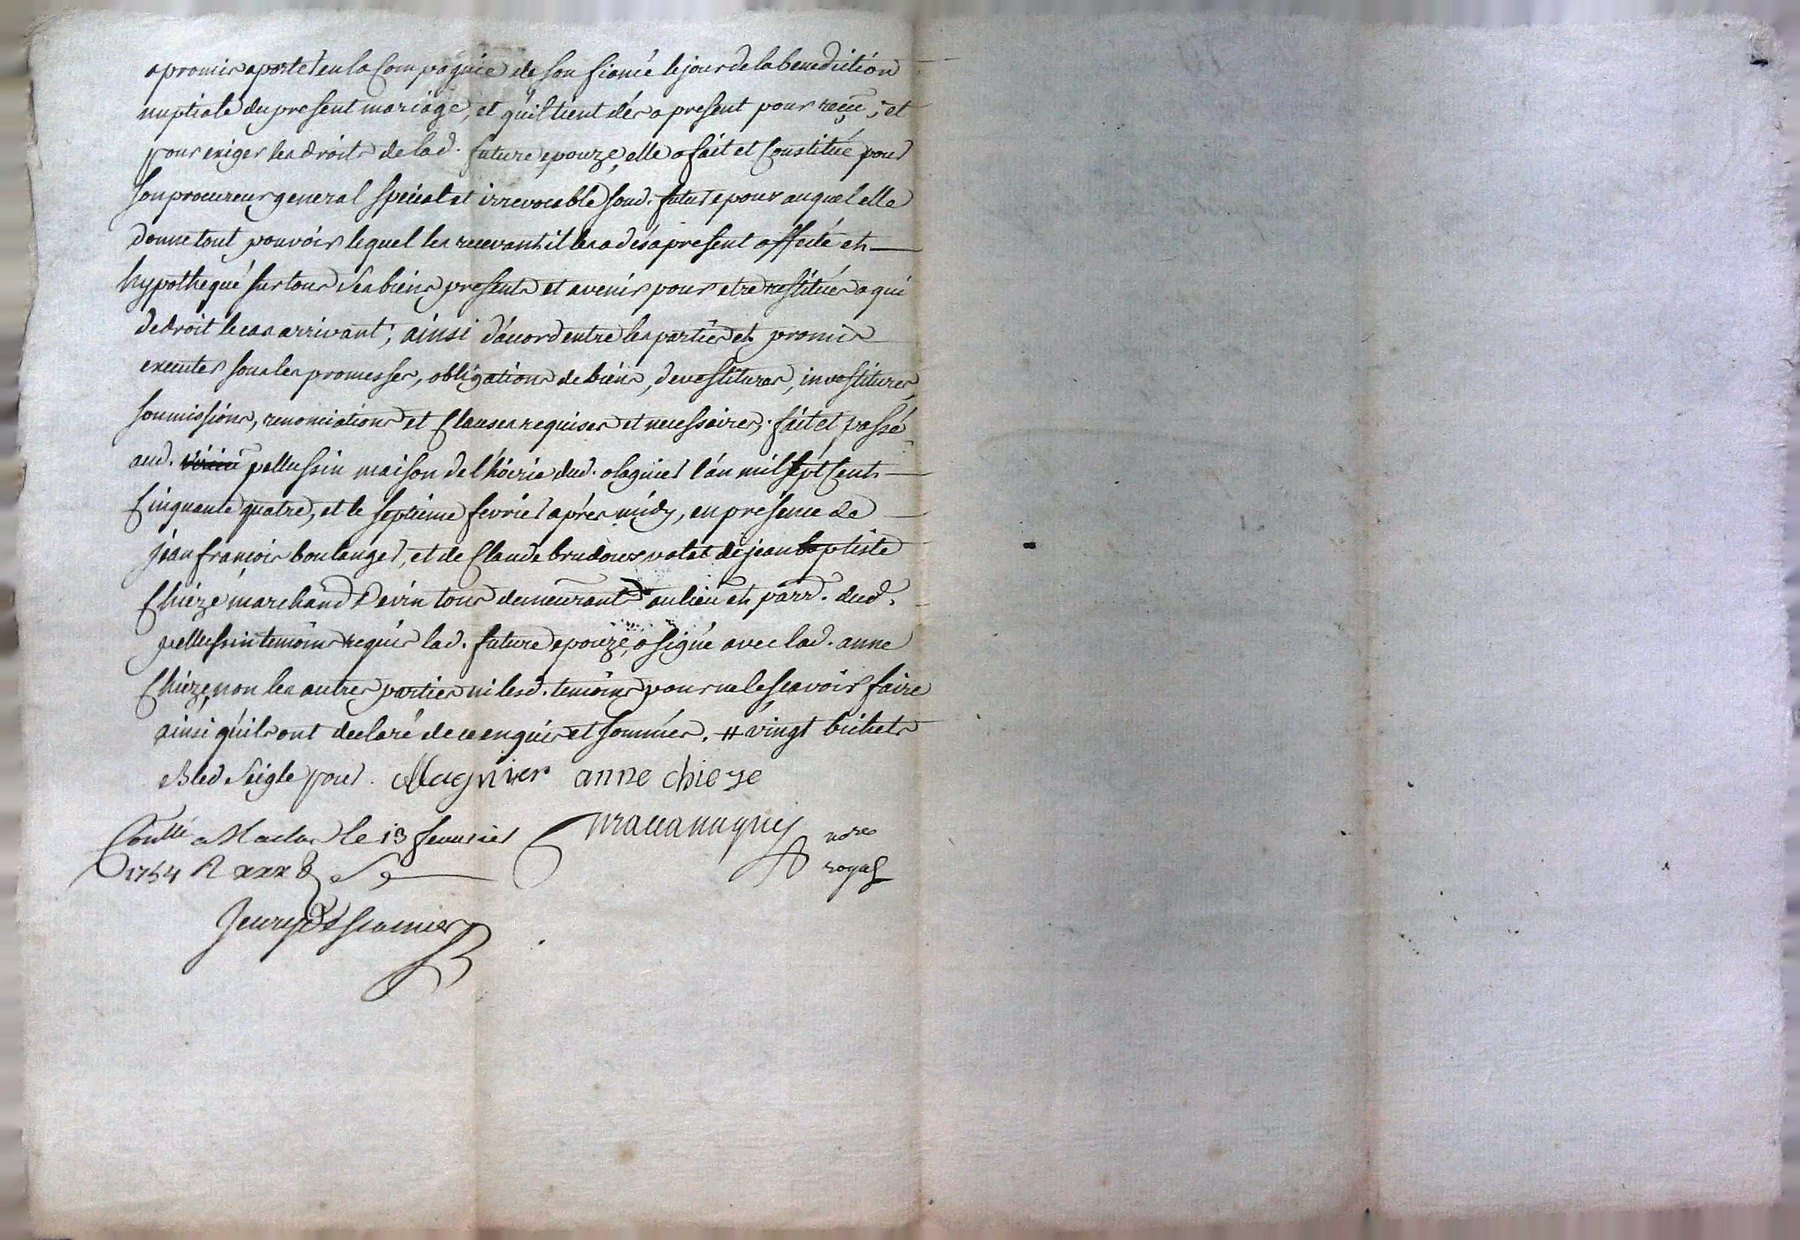 a promis aporter en la Compagnie de son fiancé le jour de la benediction
nuptiale du present mariage, et qu'il tient dés a present pour recu, et
pour exiger les droits de lad. future epouze, elle a fait et Constitué pour
son procureur general special et irrevocable sond. futur epoux auquel elle
donne tout pouvoir lequel les recevant il les a dés a present affecté et
hypothequé sur tous ses biens presents et avenir pour etre restitués a qui
de droit le cas arrivant; ainsi d'acord entre les parties et promis
executer sous les promesses, obligations de biens, devestitures, investitures,
soumissions, renonciations et Clauses requises et necessaires. fait et passé
aud. pellussin maison de l'hoirie dud. olagnier l'an mil sept Cent
Cinquante quatre, et le septieme fevrier aprés midy, en présence de
jean françois boulanger, et de Claude valet de jean baptiste
Chieze marchand devin tous demeurants au lieu et parr. dud.
pellussin temoins requis lad. future epouze, a signé avec lad. anne
Chieze, non les autres parties ni lesd. temoins pour ne le scavoir faire
ainsi qu'ils ont declaré de ce enquis et sommés. # vingt bichets
bled seigle pour. Magnier anne chieze
Conllé a Maclas le 13 fevrier
1754 R xxx s
nore
royal